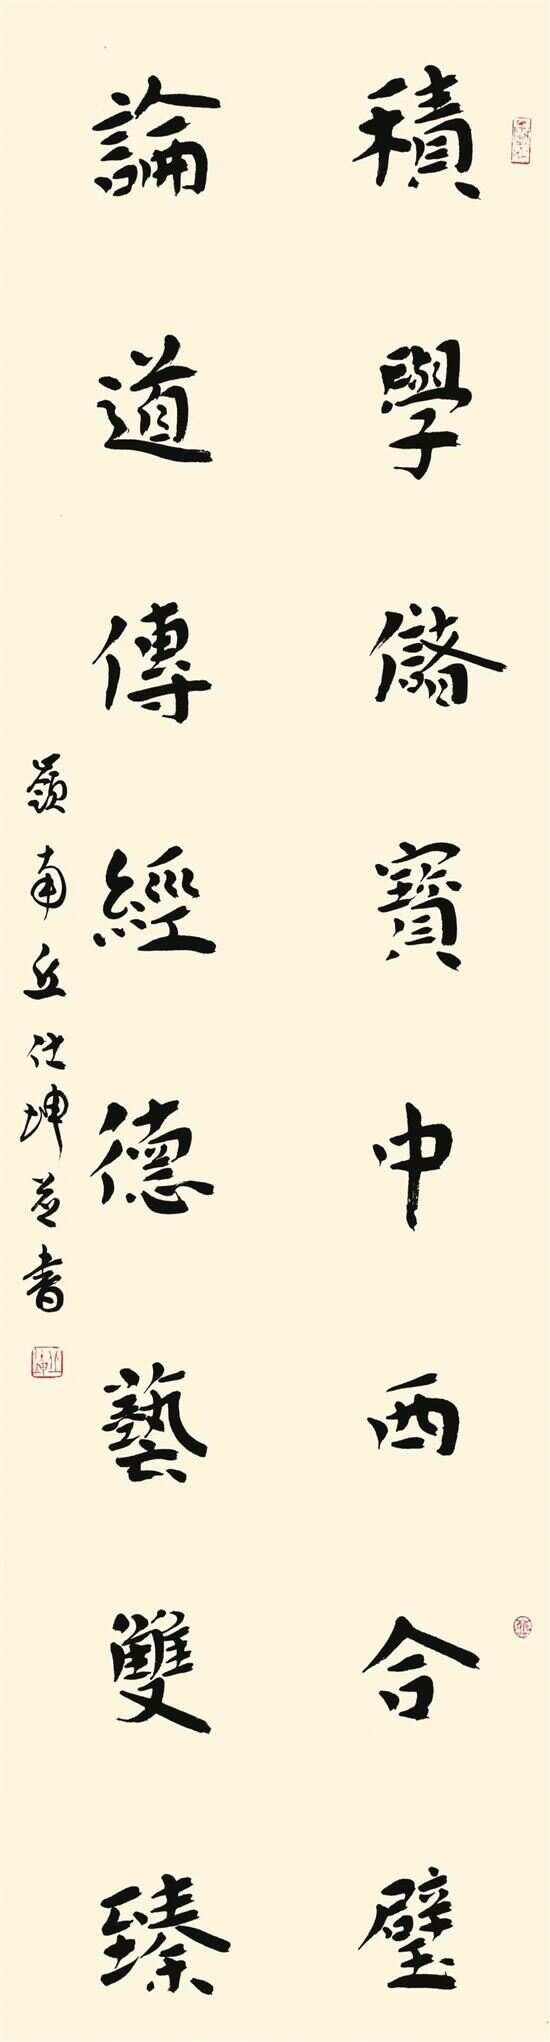 積學儲寶中西合璧
論道傳經德藝雙臻
嶺南丘仕坤並書